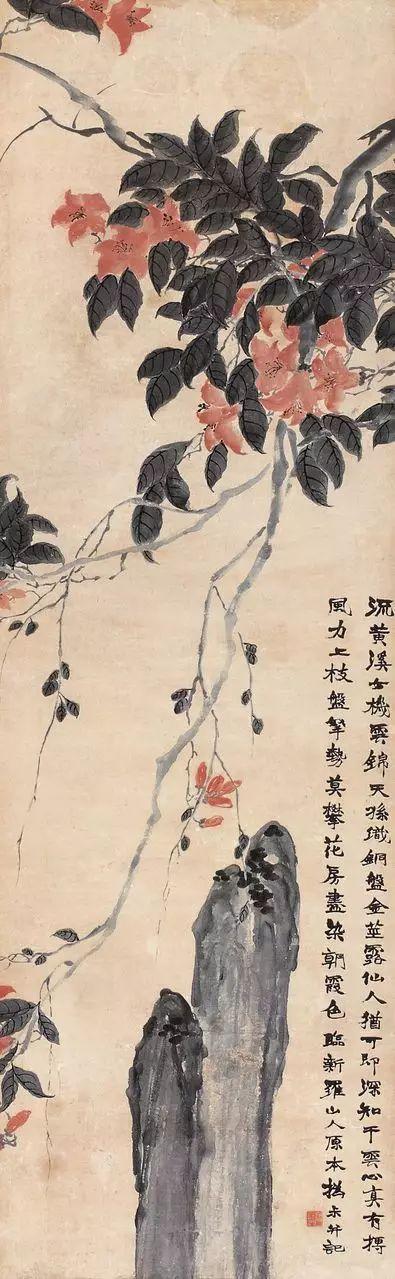 流黄溪女機雲錦天孫織銅盤金莖露仙人猶可即深知干雲心真有摶
風力上枝盤拏勢莫攀花房盡染朝霞色 臨新羅山人原本 撝尗并記